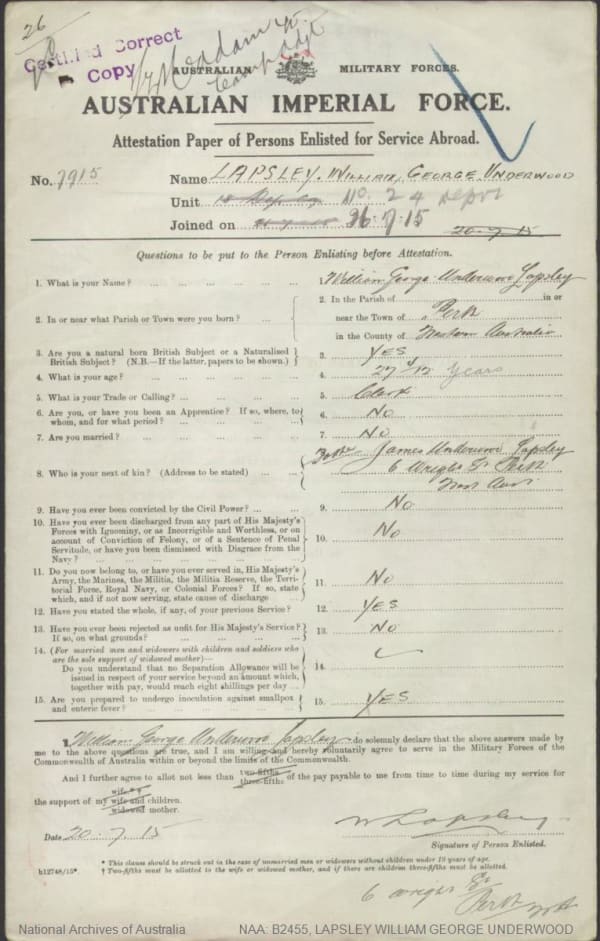 26
Certified Correct
Copy
AUSTRALIAN MILITARY FORCES.
AUSTRALIAN IMPERIAL FORCE.
Attestation Paper of Persons Enlisted for Service Abroad.
No. 7915 Name LAPSLEY. WILLIAM, GEORGE UNDERWOOD
Unit No. 24 Depot
Joined on 26.7.15
20-7-15
Questions to be put to the Person Enlisting before Attestation.
1. What is your Name? ... 1. William George Underwood Lapsley
2. In or near what Parish or Town were you born? ... 2. In the Parish of in or
near the Town of Perth
in the County of Western Australia
3. Are you a natural born British Subject or a Naturalised
British Subject? (N.B.—If the latter, papers to be shown.) 3. YES
4. What is your age? ... 4. 27 4/12 years
5. What is your Trade or Calling? ... 5. Clerk
6. Are you, or have you been an Apprentice? If so, where, to
whom, and for what period? ... 6. No
7. Are you married? ... 7. No
8. Who is your next of kin? (Address to be stated) ... Father James Underwood Lapsley
6 Wright St Perth
West Aus
9. Have you ever been convicted by the Civil Power? ... 9. No
10. Have you ever been discharged from any part of His Majesty's
Forces with Ignominy, or as Incorrigible and Worthless, or on
account of Conviction of Felony, or of a Sentence of Penal
Servitude, or have you been dismissed with Disgrace from the
Navy? ... 10. No
11. Do you now belong to, or have you ever served in, His Majesty's
Army, the Marines, the Militia, the Militia Reserve, the Terri-
torial Force, Royal Navy, or Colonial Forces? If so, state
which, and if not now serving, state cause of discharge ... 11. No
12. Have you stated the whole, if any, of your previous Service? 12. YES
13. Have you ever been rejected as unfit for His Majesty's Service?
If so, on what grounds? ... 13. No
14. (For married men and widowers with children and soldiers who
are the sole support of widowed mother)—
Do you understand that no Separation Allowance will be
issued in respect of your service beyond an amount which,
together with pay, would reach eight shillings per day ... 14.
15. Are you prepared to undergo inoculation against smallpox
and enteric fever? ... 15. YES
I, William George Underwood Lapsley do solemnly declare that the above answers made by
me to the above questions are true, and I am willing and hereby voluntarily agree to serve in the Military Forces of the
Commonwealth of Australia within or beyond the limits of the Commonwealth.
And I further agree to allot not less than two-fifths three-fifths of the pay payable to me from time to time during my service for
the support of my wife wife and children. widowed mother.
Date 20.7.15 W Lapsley
Signature of Person Enlisted.
* This clause should be struck out in the case of unmarried men or widowers without children under 18 years of age.
b12748/15*. † Two-fifths must be allotted to the wife or widowed mother, and if there are children three-fifths must be allotted.
6 Wright St
Perth WA
National Archives of Australia NAA: B2455, LAPSLEY WILLIAM GEORGE UNDERWOOD